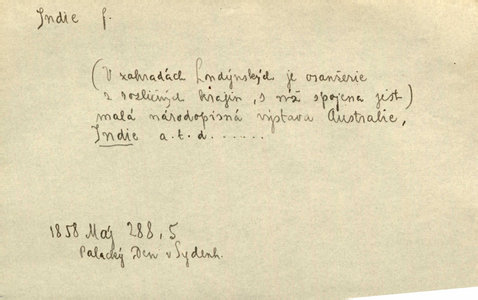 Indie f.
(V zahradách Londýnských je oranžerie
z rozličných krajin, s níž spojena jest)
malá národopisná výstava Australie,
Indie a.t.d. ......
1858 Máj 288,5
Palacký Den v Sydenh.